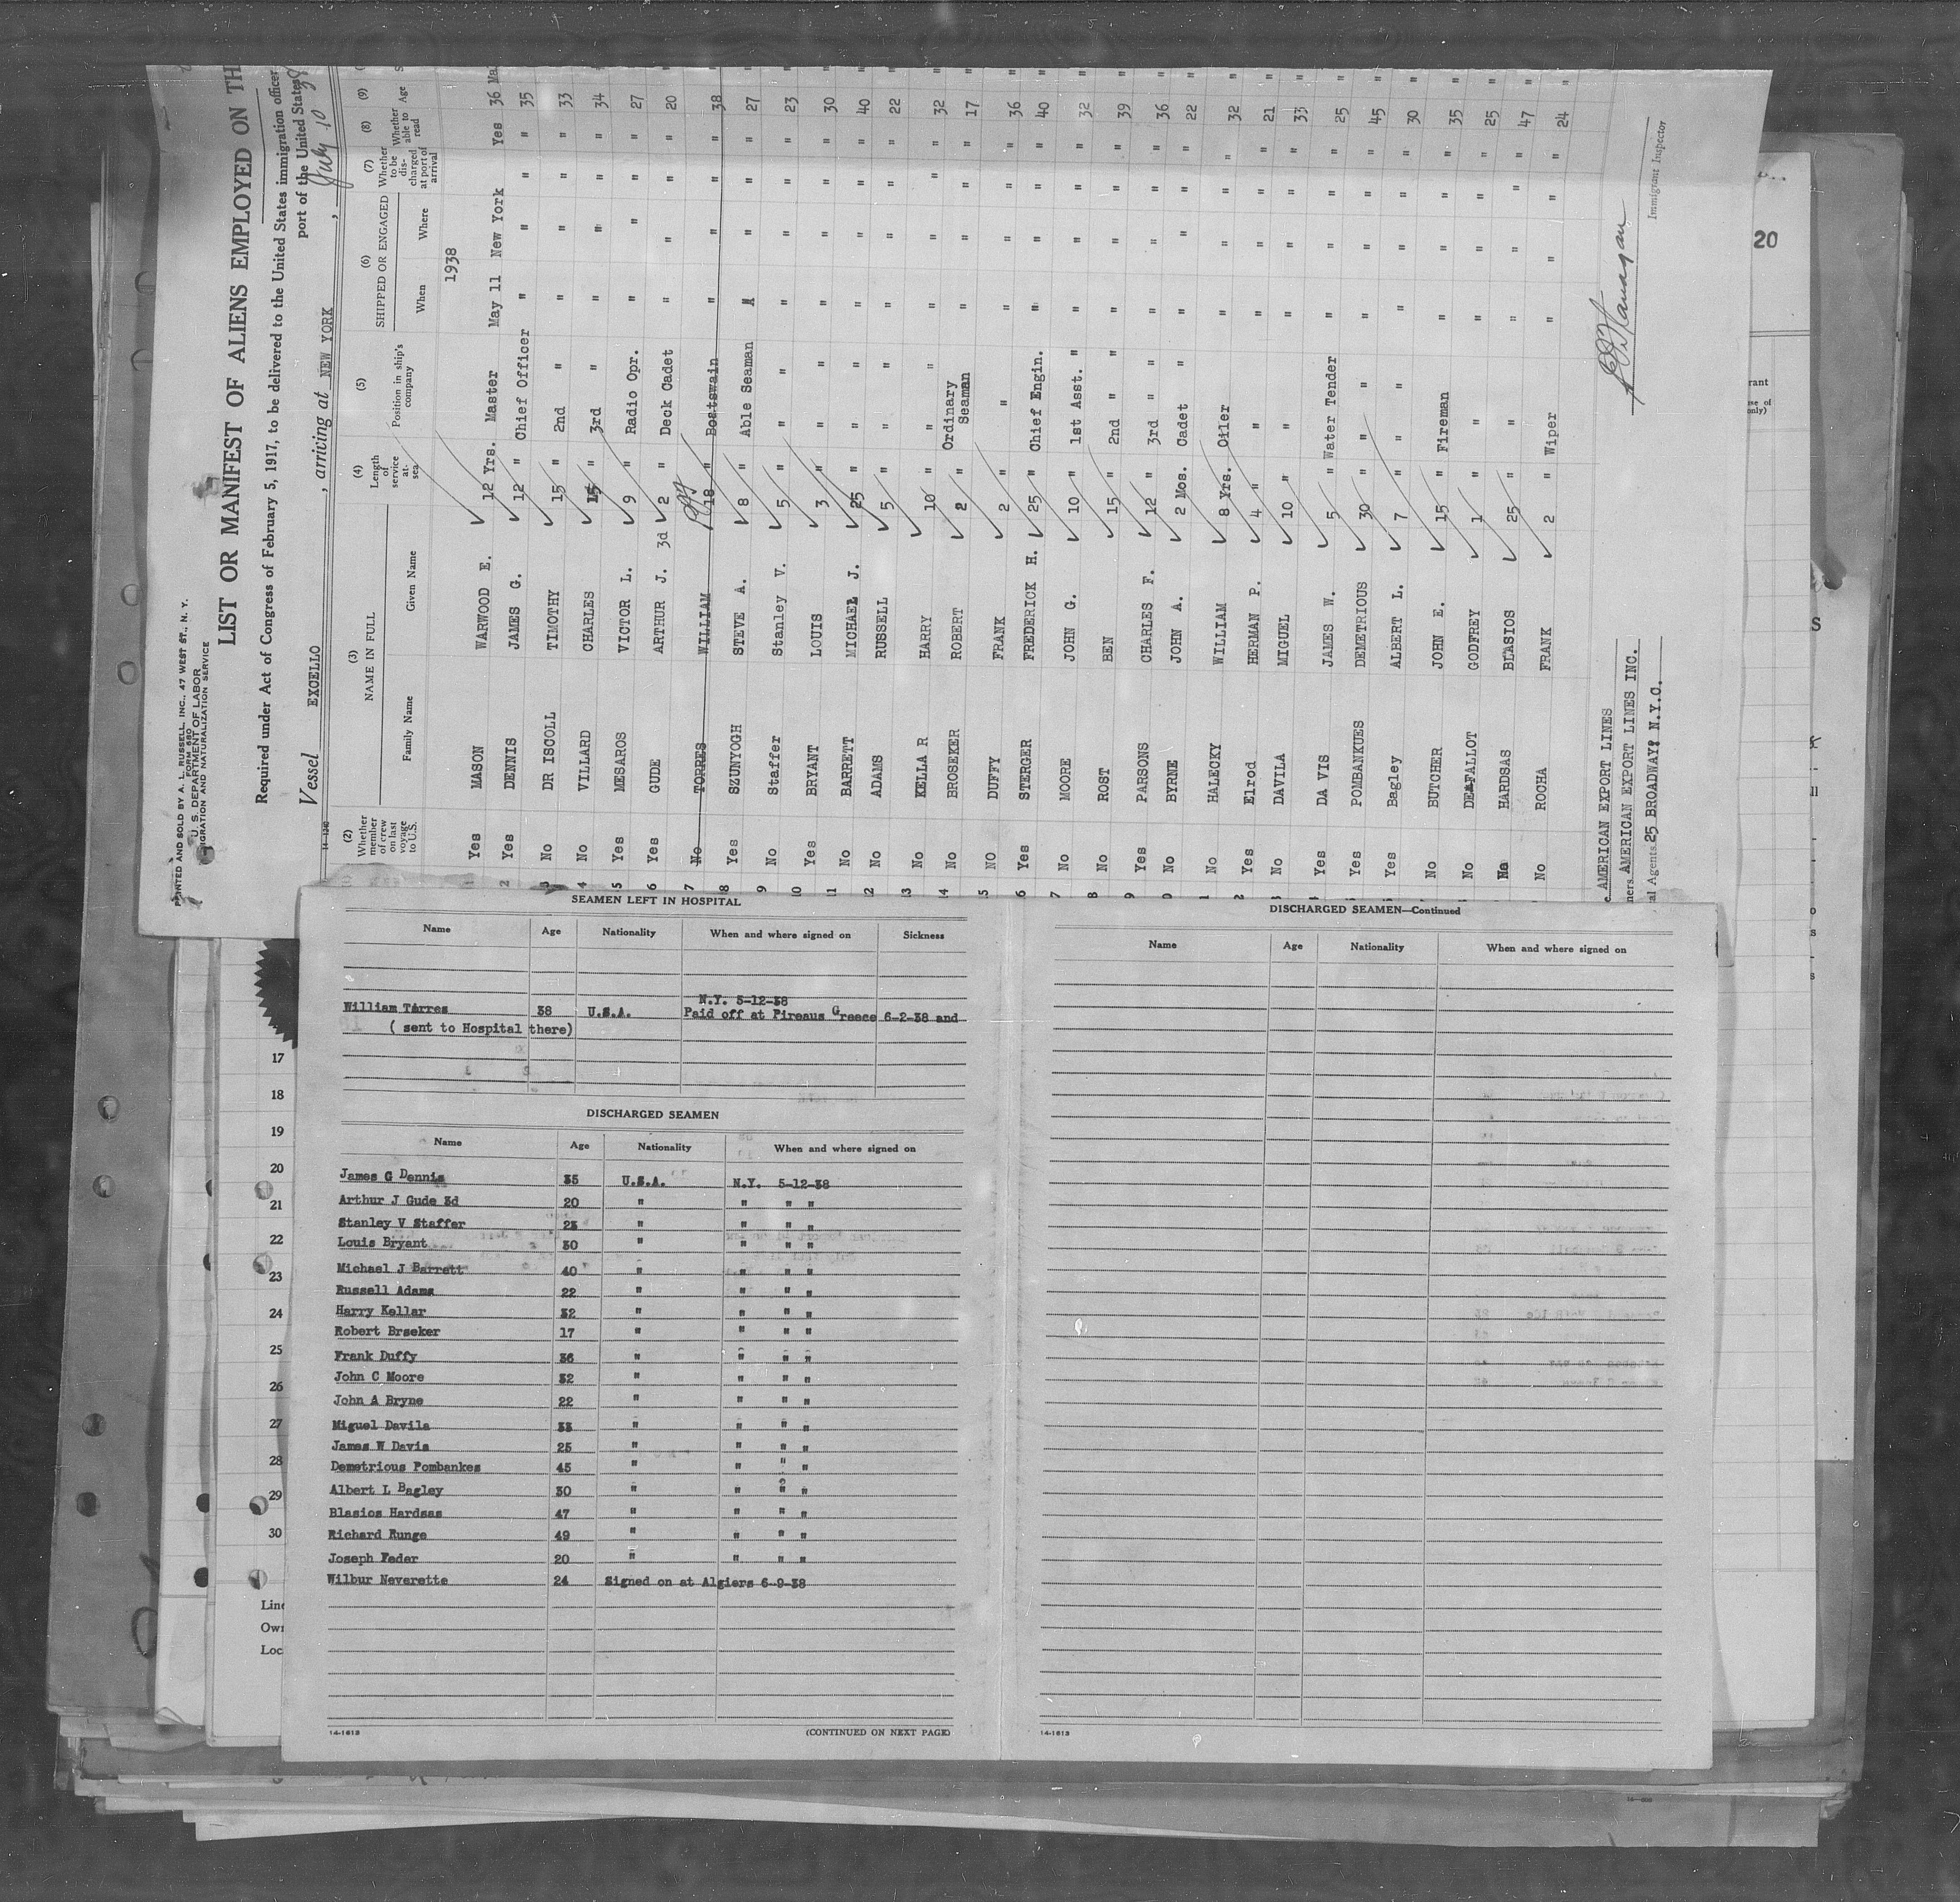 PRINTED AND SOLD BY A. L. RUSSELL, INC., 47 WEST ST., N. Y.
FORM 680
U. S. DEPARTMENT OF LABOR
IMMIGRATION AND NATURALIZATION SERVICE
LIST OR MANIFEST OF ALIENS EMPLOYED ON TH
Required under Act of Congress of February 5, 1917, to be delivered to the United States immigration officer
port of the United States
Vessel EXCELLO , arriving at NEW YORK , July 10
14-1240
(2) Whether member of crew on last voyage to U.S. (3) NAME IN FULL Family Name Given Name (4) Length of service at sea (5) Position in ship's company (6) SHIPPED OR ENGAGED When Where (7) Whether to be discharged at port of arrival (8) Whether able to read (9) Age
1938
Yes MASON WARWOOD E. 12 Yrs. Master May 11 New York Yes 36
2 Yes DENNIS JAMES G. 12 " Chief Officer " " " " 35 "
3 No DR ISCOLL TIMOTHY 15 " 2nd " " " " " 33 "
4 No VILLARD CHARLES 15 " 3rd " " " " " 34 "
5 Yes MESAROS VICTOR L. 9 " Radio Opr. " " " " 27 "
6 Yes GUDE ARTHUR J. 3d 2 " Deck Cadet " " " " 20 "
7 No TORRES WILLIAM 18 " Boatswain " " " " 38 "
8 Yes SZUNYOGH STEVE A. 8 " Able Seaman " " " " 27 "
9 No Staffer Stanley V. 5 " " " " " " 23 "
10 Yes BRYANT LOUIS 3 " " " " " " 30 "
11 No BARRETT MICHAEL J. 25 " " " " " " 40 "
12 No ADAMS RUSSELL 5 " " " " " " 22 "
13 No KELLA R HARRY 10 " " " " " " 32 "
14 No BROSEKER ROBERT 2 " Ordinary Seaman " " " " 17 "
5 NO DUFFY FRANK 2 " " " " " " 36 "
6 Yes STERGER FREDERICK H. 25 " Chief Engin. " " " " 40 "
7 No MOORE JOHN G. 10 " 1st Asst. " " " " " 32 "
8 No ROST BEN 15 " 2nd " " " " " " 39 "
9 Yes PARSONS CHARLES F. 12 " 3rd " " " " " 36 "
0 No BYRNE JOHN A. 2 Mos. Cadet " " " " " 22 "
1 No HALECKY WILLIAM 8 Yrs. Oiler " " " " 32 "
2 Yes Elrod HERMAN P. 4 " " " " " " 21 "
3 No DAVILA MIGUEL 10 " " " " " " 33 "
Yes DA VIS JAMES W. 5 " Water Tender " " " " 25 "
Yes POMBANKUES DEMETRIOUS 30 " " " " " " 45 "
Yes Bagley ALBERT L. 7 " " " " " " 30 "
No BUTCHER JOHN E. 15 " Fireman " " " " 35 "
No DEAFALLOT GODFREY 1 " " " " " " 25 "
No HARDSAS BLASIOS 25 " " " " " " 47 "
No ROCHA FRANK 2 " Wiper " " " " 24 "
AMERICAN EXPORT LINES
ners AMERICAN EXPORT LINES INC.
al Agents 25 BROADWAY N.Y.C.
Immigrant Inspector
20
SEAMEN LEFT IN HOSPITAL
Name Age Nationality When and where signed on Sickness
N.Y. 5-12-38
William Tarres 38 U.S.A. Paid off at Pireaus Greece 6-2-38 and
( sent to Hospital there)
DISCHARGED SEAMEN
Name Age Nationality When and where signed on
James G Dennis 35 U.S.A. N.Y. 5-12-38
Arthur J Gude 3d 20 " " " "
Stanley V Staffer 23 " " " "
Louis Bryant 30 " " " "
Michael J Barrett 40 " " " "
Russell Adams 22 " " " "
Harry Kellar 32 " " " "
Robert Brseker 17 " " " "
Frank Duffy 36 " " " "
John C Moore 32 " " " "
John A Bryne 22 " " " "
Miguel Davila 33 " " " "
James W Davis 25 " " " "
Demetrious Pombankes 45 " " " "
Albert L Bagley 30 " " " "
Blasios Hardsas 47 " " " "
Richard Runge 49 " " " "
Joseph Feder 20 " " " "
Wilbur Neverette 24 Signed on at Algiers 6-9-38
14-1613
(CONTINUED ON NEXT PAGE)
DISCHARGED SEAMEN—Continued
Name Age Nationality When and where signed on
14-1613
17
18
19
20
21
22
23
24
25
26
27
28
29
30
Line
Own
Loc